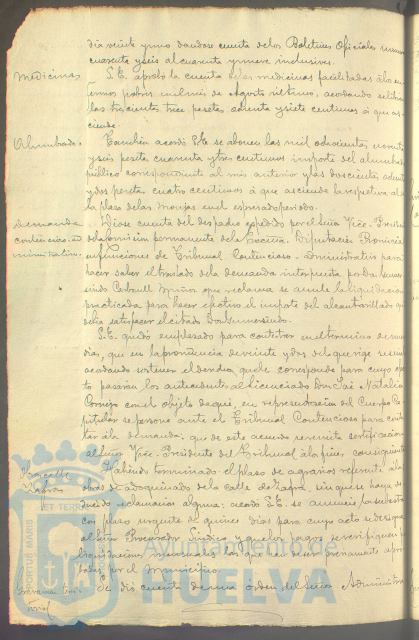 dia veinte y uno dandose cuenta de los Boletines Oficiales numeros
cuarenta y seis al cuarenta y nueve inclusives.
Medicinas
S.E. aprobó la cuenta de las medicinas facilitadas á los en-
fermos pobres en el mes de Agosto ultimo, acordando se libren
las trescientas trece pesetas, y siete centimos á que as-
ciende.
Alumbrado.
Tambien acordó S.E. se abonen las mil ochocientas noventa
y seis pesetas cuarenta y tres centimos importe del alumbrado
público correspondiente al mes anterior y las doscientas
y dos pesetas cuatro centimos á que asciende la respectiva al de
la plaza de las Monjas en el espresado periodo.
Demanda
contencioso-ad
ministrativa.
Dióse cuenta del despacho espedido por el Señor Vice-Presidente
de la Comision permanente de la Excma. Diputacion Provincial
en funciones de Tribunal Contencioso-Administrativo para
hacer saber el traslado de la demanda interpuesta por Don Gumer-
sindo que reclama se anule la liquidacion
practicada para hacer efectivo el importe del alcantarillado que
debia satisfacer el citado Don Gumersindo.
S.E. quedó emplazado para contestar en el termino de nueve
dias, que en la providencia de veinte y dos del que rige se
acordando sostener el derecho que le corresponde para cuyo efec-
to pasarán los antecedentes al Licenciado Don José Natalio
Cornejo con el objeto de que, en representacion del Cuerpo Ca-
pitular se persone ante el Tribunal Contencioso para contes-
tar á la demanda; que de este acuerdo se remita certificacion
al Señor Vice-Presidente del Tribunal á los fines consiguientes.
Habiendo terminado el plazo de agravios referente á las
obras de adoquinado de la calle de Zafra, sin que se haya de-
ducido reclamacion alguna; acordó S.E. se anuncie la subasta
con plazo urgente de quince dias para cuyo acto se designa
al Señor Procurador Sindico y que los pagos se verifiquen por
liquidaciones mensuales las que han de ser previamente apro-
badas por el municipio.
Se dió cuenta de una órden del Señor Administra
Ayuntamiento de
HUELVA
PORTUS MARIS
ET TERRÆ